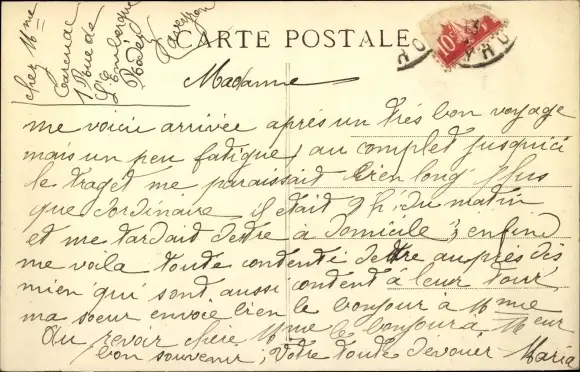 chez Mme
1 Rue de
l'Embergue
Rodez
Aveyron
CARTE POSTALE
10
Madame
me voici arrivée après un trés bon voyage
mais un peu fatigue, au complet jusqu'ici
le traget me paraissait bien long plus
que d'ordinaire il était 9 h du matin
et me tardait dettre à domicile, enfind
me voila toute contente dettre auprès dés
mien qui sont aussi contend à leur tour
ma sœur envoie bien le bonjour à Mme
Au revoir chère Mme le bonjour a Meur
bon souvenir, Votre toute dévouer Maria